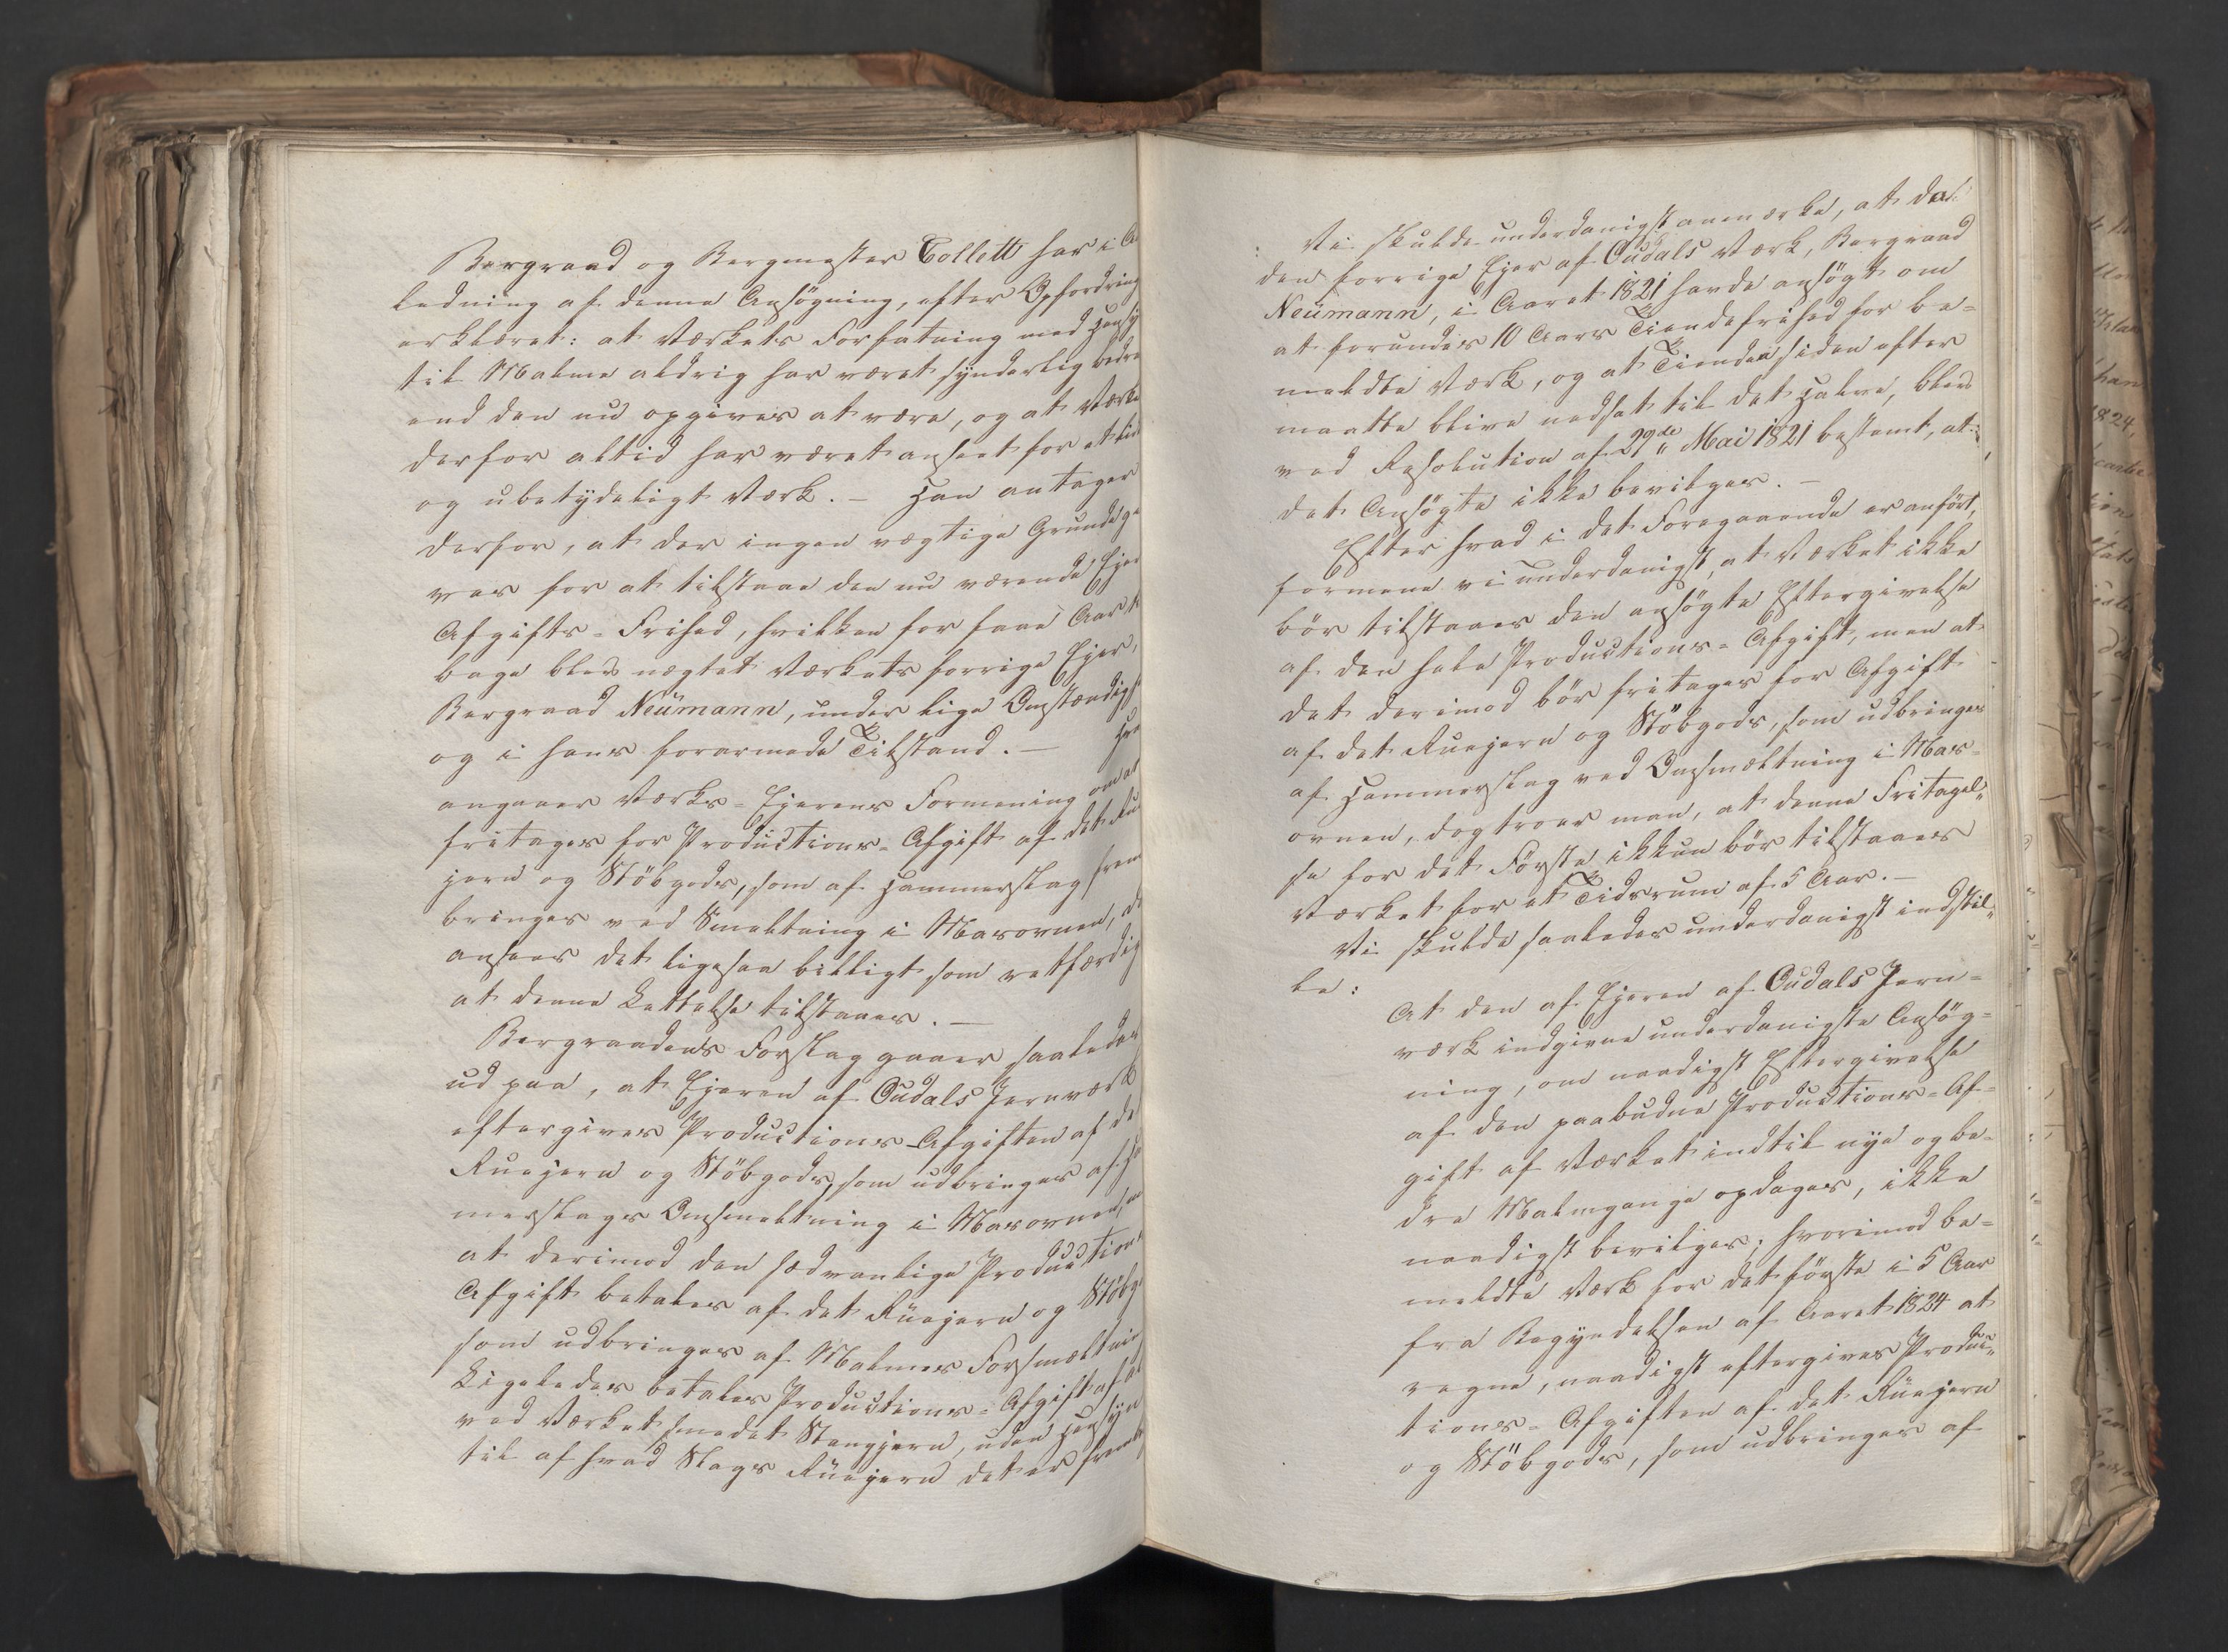 Bergraad og Bergmester Collett har i
ledning af denne Ansögning, efter Opfordring
erklæret: at Værkets Forfatning med Hensy
til Malme aldrig har været synderlig bedre
end den nu opgives at være, og at Værke
derfor altid har været anseet for et lid
og ubetydeligt Værk. – Han antager
derfor, at der ingen vægtige Grunde
var for at tilstaae den nu værende Ejer
Afgifts-Frihed, hvilken for faae Aar
bage blev nægtet Værkets forrige Ejer,
Bergraad Neümann, under lige Omstændigh
og i hans forarmede Tilstand. –
angaaer Værks-Ejerens Formening om at
fritages for Productions-Afgift af det Ru
jern og Stöbgods, som af Hammerslag frem
bringes ved Smeltning i Masovnen,
ansees det ligesaa billigt som retfærdig
at denne Lettelse tilstaaes. –
Bergraadens Forslag gaaer saaledes
ud paa, at Ejeren af Oudals Jernværk
eftergives Productions-Afgiften af de
Ruejern og Stöbgods, som udbringes af Ha
merslags Omsmeltning i Masovnen,
at derimod den sædvanlige Production
Afgift betales af det Rüejern og Stöbg
som udbringes af Malmes Forsmeltning
Ligeledes betales Productions-Afgift af
ved Værket smedet Stangjern, uden Hensyn
til af hvad Slags Rüejern det er fremb
Vi skulde underdanigst anmærke, at da
den forrige Ejer af Oudals Værk, Bergraad
Neümann, i Aaret 1821 havde ansögt om
at forundes 10 Aars Tiendefrihed for be=
meldte Værk, og at Tienden siden efter
maatte blive nedsat til det Halve, blev
ved Resolution af 29de Mai 1821 bestemt, at:
det Ansögte ikke bevilges. –
Efter hvad i det Foregaaende er anfört,
formene vi underdanigst, at Værket ikke
bör tilstaaes den ansögte Eftergivelse
af den hele Productions=Afgift, men at
det derimod bör fritages for Afgift
af det Ruejern og Stöbgods, som udbringes
af Hammerslag ved Omsmeltning i Mas=
ovnen, dog troer man, at denne Fritagel„
se for det Förste ikkun bör tilstaaes
Værket for et Tidsrum af 5 Aar. –
Vi skulde saaledes underdanigst indstil„
le:
At den af Ejeren af Oudals Jern=
værk indgivne underdanigste Ansög=
ning, om naadigst Eftergivelse
af den paabudne Productions=Af=
gift af Værket indtil nye og be=
dre Malmgange opdages, ikke
naadigst bevilges; hvorimod be=
meldte Værk for det förste i 5 Aar
fra Begyndelsen af Aaret 1824 at
regne, naadigst eftergives Produc„
tions=Afgiften af det Rüejern
og Stöbgods, som udbringes af